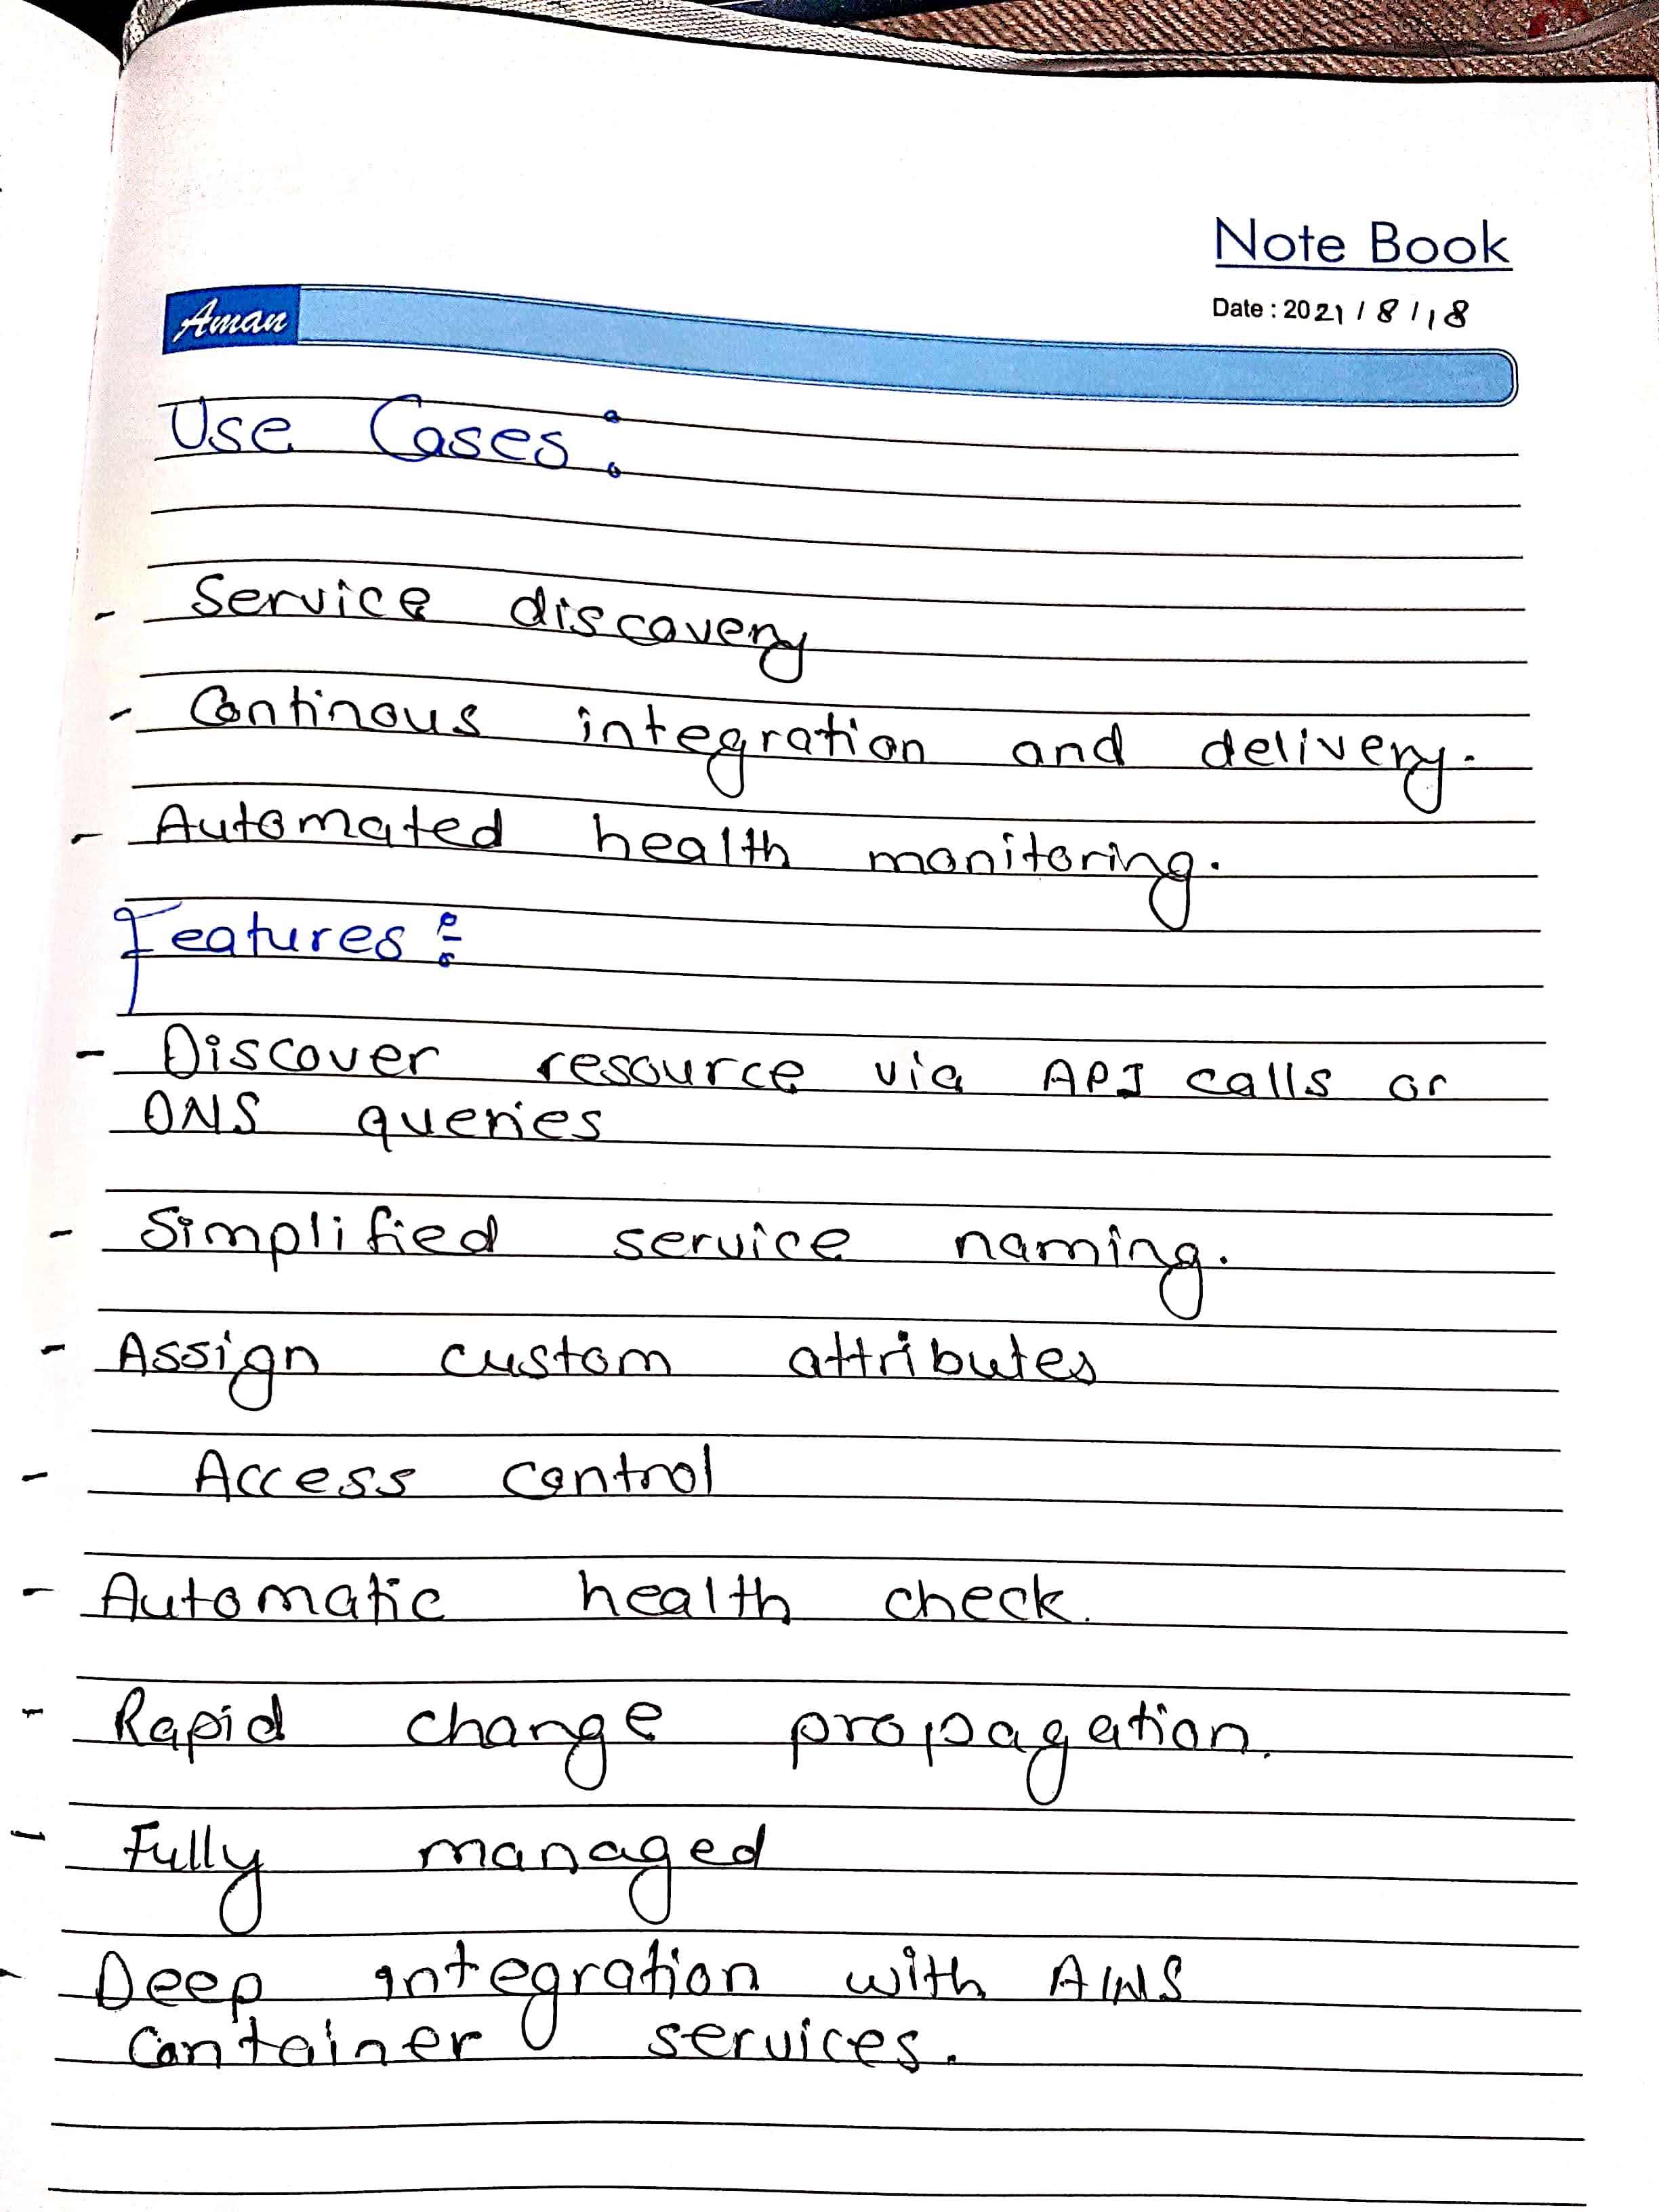 Note Book
Date : 2021 / 8 / 18
Aman
Use Cases :
- Service discovery
- Continous integration and delivery.
- Automated health monitoring.
Features :-
- Discover resource via API calls or
DNS queries
- Simplified service naming.
- Assign custom attributes
- Access control
- Automatic health check.
- Rapid change propagation.
- Fully managed
- Deep integration with AWS
Container services.